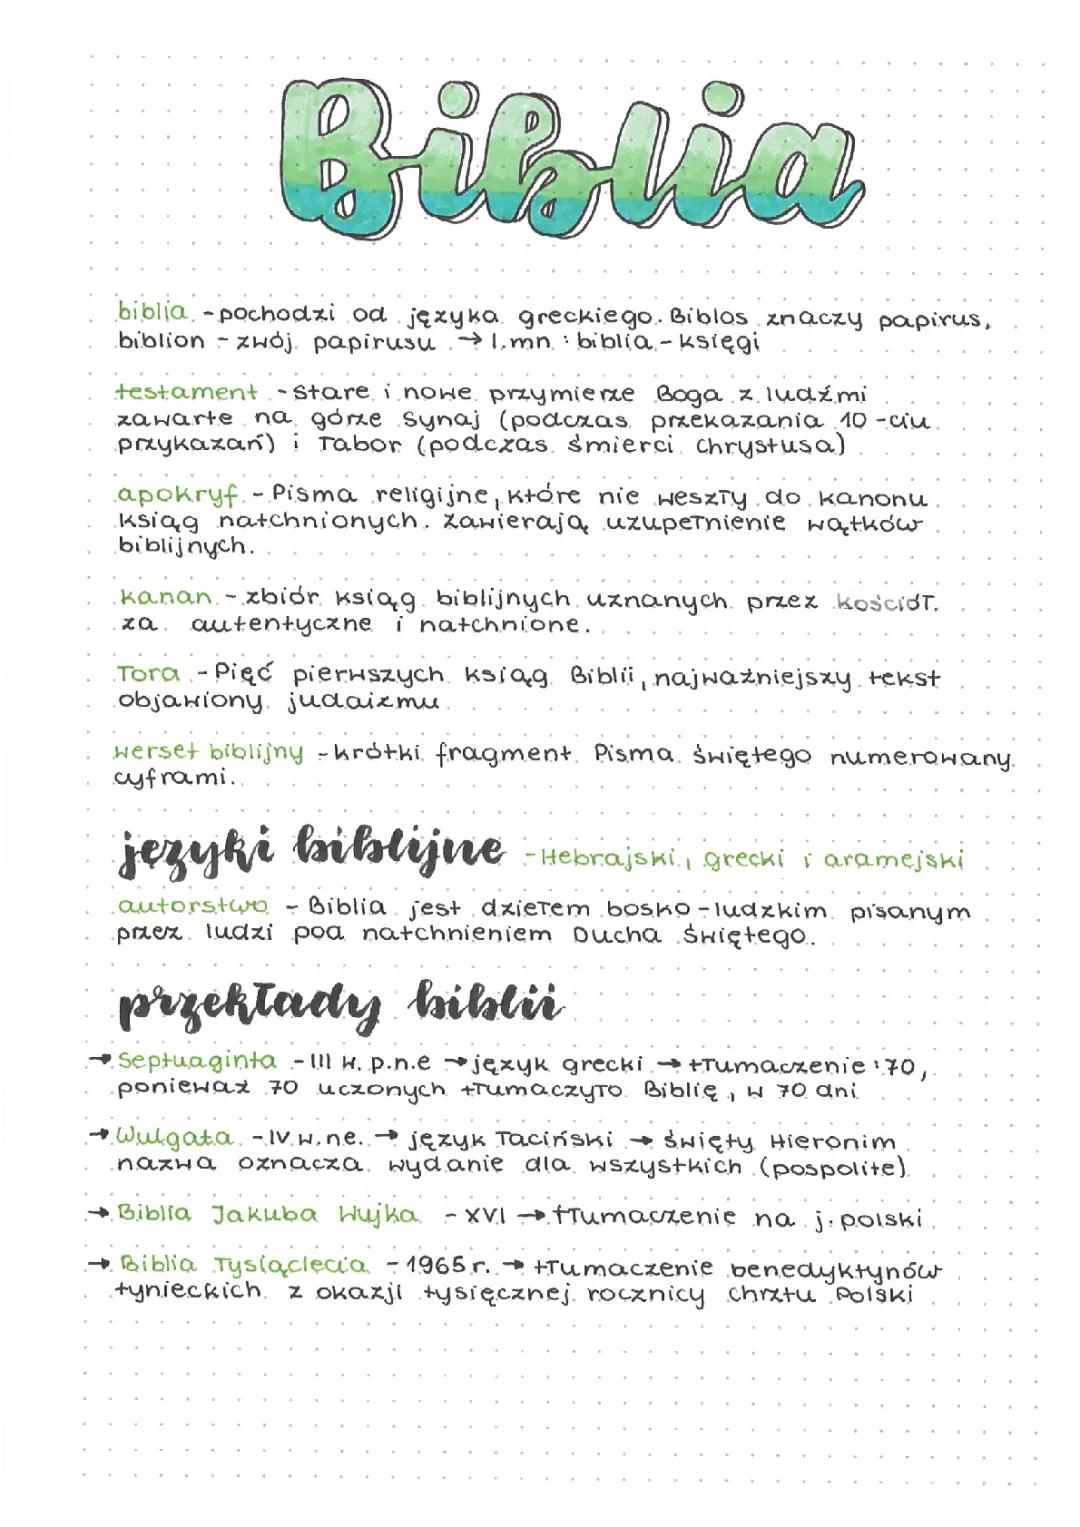 Biblia
biblia - pochodzi od języka greckiego. Biblos znaczy papirus,
biblion - zwój papirusu → l.mn : biblia - księgi
testament - Stare i nowe przymierze Boga z ludźmi
zawarte na górze Synaj (podczas przekazania 10-ciu
przykazań) i Tabor (podczas śmierci Chrystusa)
apokryf - Pisma religijne, które nie weszły do kanonu
ksiąg natchnionych. Zawierają uzupełnienie wątków
biblijnych.
kanan - zbiór ksiąg biblijnych uznanych przez kościół
za autentyczne i natchnione.
Tora - Pięć pierwszych ksiąg Biblii, najważniejszy tekst
objawiony judaizmu
werset biblijny - krótki fragment Pisma Świętego numerowany
cyframi.
języki biblijne - Hebrajski, grecki i aramejski
autorstwo - Biblia jest dziełem bosko-ludzkim pisanym
przez ludzi pod natchnieniem Ducha Świętego.
przekłady biblii
→ Septuaginta - III w. p.n.e → język grecki → tłumaczenie : 70,
ponieważ 70 uczonych tłumaczyło Biblię, w 70 dni
→ Wulgata - IV w. n.e. → język łaciński → święty Hieronim
nazwa oznacza wydanie dla wszystkich (pospolite)
→ Biblia Jakuba Wujka - XVI → tłumaczenie na j. polski
→ Biblia Tysiąclecia - 1965r. → tłumaczenie benedyktynów
tynieckich z okazji tysięcznej rocznicy chrztu Polski